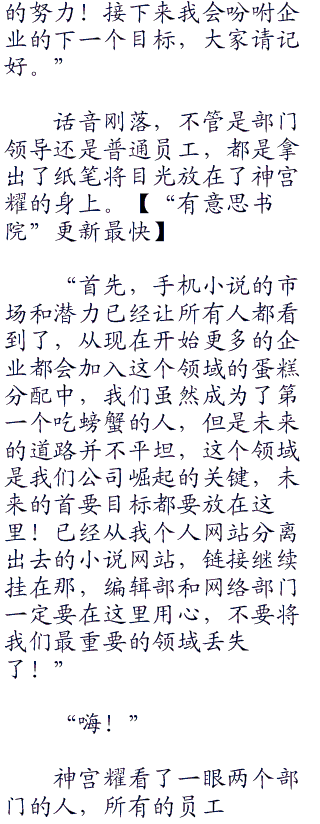 的努力！接下来我会吩咐企
业的下一个目标，大家请记
好。”
话音刚落，不管是部门
领导还是普通员工，都是拿
出了纸笔将目光放在了神宫
耀的身上。【“有意思书
院”更新最快】
“首先，手机小说的市
场和潜力已经让所有人都看
到了，从现在开始更多的企
业都会加入这个领域的蛋糕
分配中，我们虽然成为了第
一个吃螃蟹的人，但是未来
的道路并不平坦，这个领域
是我们公司崛起的关键，未
来的首要目标都要放在这
里！已经从我个人网站分离
出去的小说网站，链接继续
挂在那，编辑部和网络部门
一定要在这里用心，不要将
我们最重要的领域丢失
了！”
“嗨！”
神宫耀看了一眼两个部
门的人，所有的员工